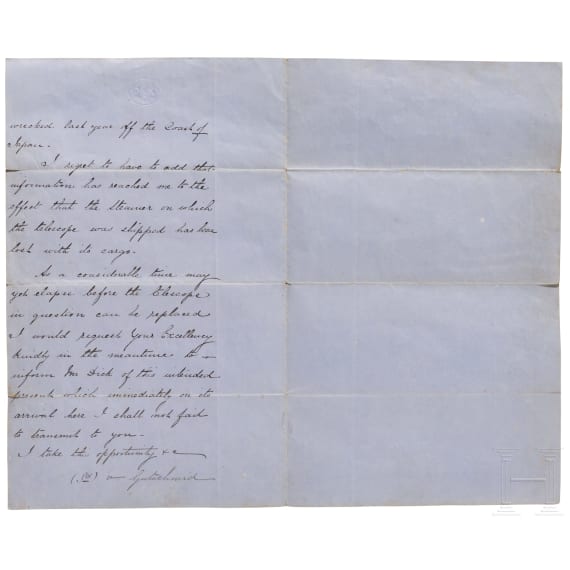 wrecked last year off the Coast of
Japan.
I regret to have to add that
information has reached me to the
effect that the Steamer on which
the telescope was shipped has been
lost with its cargo.
As a considerable time may
yet elapse before the telescope
in question can be replaced
I would request Your Excellency
kindly in the meantime to
inform Mr Dick of this intended
present which immediately on its
arrival here I shall not fail
to transmit to you -
I take the opportunity &c
H